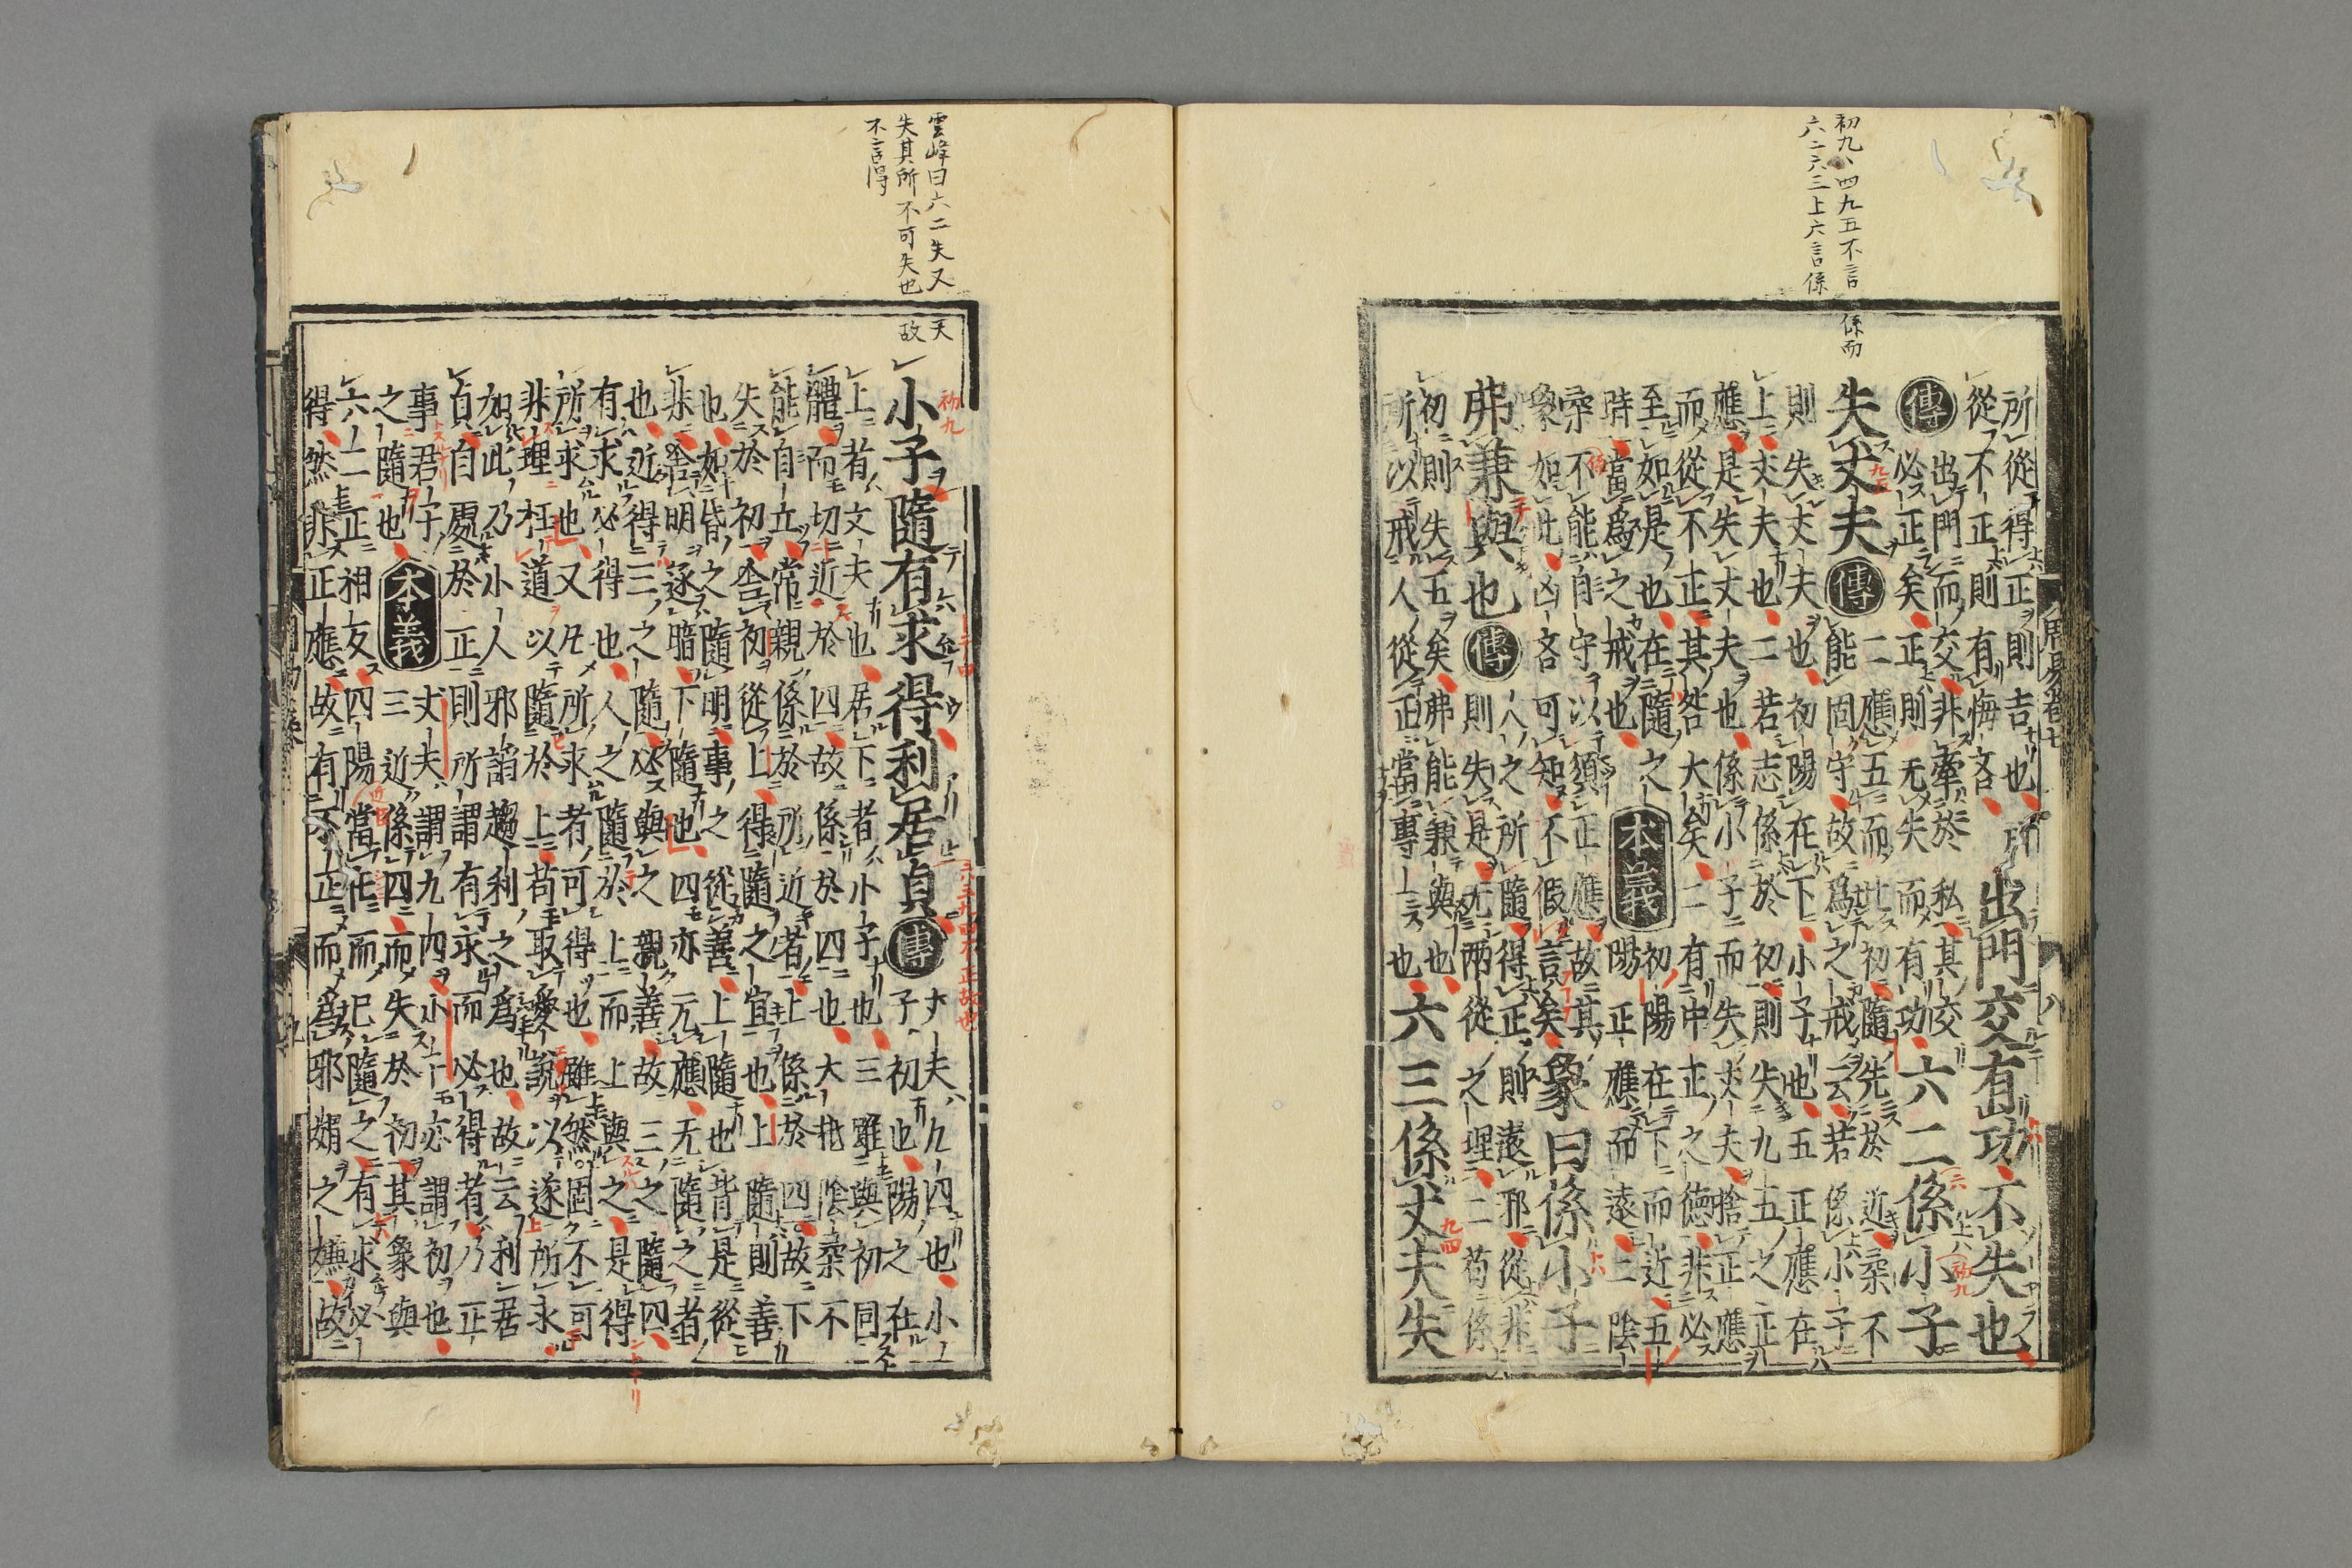 初九、四九五不言係而
六二六三上六言係
所從得正則吉也所
從不正則有悔吝
出門交有功不失也
傳
出門而交非牽於私其交
必正矣正則无失而有功
六二係小子
失丈夫
傳
二應五而比初隨先於近柔不
能固守故爲之戒云若係小子
則失丈夫也初陽在下小子也五正應在
上丈夫也二若志係於初則失九五之正
應是失丈夫也係小子而失丈夫捨正應
而從不正其咎大矣二有中正之德非必
至如是也在隨之
時當爲之戒也
本義
初陽在下而近五
陽正應而遠二陰
柔不能自守以須正應故其
象如此凶吝可知不假言矣
象曰係小子
弗兼與也
傳
人之所隨得正則遠邪從非
則失是无兩從之理二苟係
初則失五矣弗能兼與也
所以戒人從正當專一也
六三係丈夫失
雲峰曰六二失丈夫
失其所不可失也故
不言得
小子隨有求得利居貞
傳
丈夫九四也小
子初也陽之在
上者丈夫也居下者小子也三雖與初同
體而切近於四故係於四也大抵陰柔不
能自立常親係於所近者上係於四故下
失於初舍初從上得隨之宜也上隨則善
也如昏之隨明事之從善上隨也背是從
非舍明逐暗下隨也四亦无應无隨之者
也近得三之隨必與之親善故三之隨四
有求必得也人之隨於上而上與之是得
所求也又凡所求者可得也雖然固不可
非理枉道以隨於上苟取愛說以遂所求
如此乃小人邪諂趨利之爲也故云利居
貞自處於正則所謂有求而必得者乃正
事君子
之隨也
本義
丈夫謂九四小子亦謂初也
三近係四而失於初其象與
六二正相反四陽當任而己隨之有求必
得然非正應故有不正而爲邪媚之嫌故